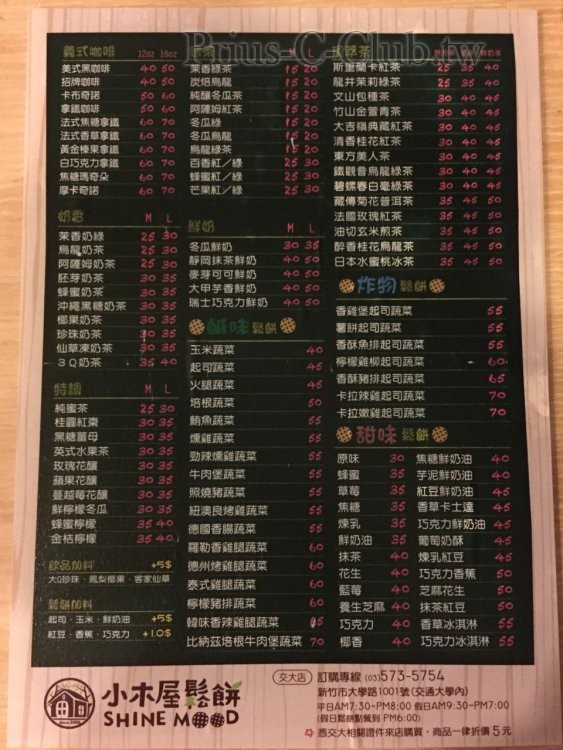 Prius-C Club.tw
義式咖啡 12oz 16oz
美式黑咖啡 40 50
招牌咖啡 40 50
卡布奇諾 50 60
拿鐵咖啡 50 60
法式焦糖拿鐵 60 70
法式香草拿鐵 60 70
黃金榛果拿鐵 60 70
白巧克力拿鐵 60 70
焦糖瑪奇朵 60 70
摩卡奇諾 60 70
奶香 M L
茉香奶綠 25 30
烏龍奶茶 25 30
阿薩姆奶茶 25 30
胚芽奶茶 30 35
蜂蜜奶茶 30 35
沖繩黑糖奶茶 30 35
椰果奶茶 30 35
珍珠奶茶 30 35
仙草凍奶茶 30 35
3Q奶茶 35 40
特調 M L
純蜜茶 25 30
桂圓紅棗 30 35
黑糖薑母 30 35
英式水果茶 30 35
玫瑰花釀 30 35
蘋果花釀 30 35
蔓越莓花釀 30 35
鮮檸檬冬瓜 30 35
蜂蜜檸檬 35 40
金桔檸檬 35 40
飲品加料 +5$
大Q珍珠、鳳梨椰果、客家仙草
鬆餅加料
起司、玉米、鮮奶油 +5$
紅豆、香蕉、巧克力 +10$
M L
茉香綠茶 15 20
炭焙烏龍 15 20
純釀冬瓜茶 15 20
阿薩姆紅茶 15 20
冬瓜綠 15 20
冬瓜烏龍 15 20
烏龍綠茶 15 20
百香紅/綠 25 30
蜂蜜紅/綠 25 30
芒果紅/綠 25 30
鮮奶 M L
冬瓜鮮奶 30 35
靜岡抹茶鮮奶 40 50
麥芽可可鮮奶 40 50
大甲芋香鮮奶 40 50
瑞士巧克力鮮奶 40 50
鹹味鬆餅
玉米蔬菜 40
起司蔬菜 45
火腿蔬菜 45
培根蔬菜 50
鮪魚蔬菜 55
燻雞蔬菜 55
勁辣燻雞蔬菜 55
牛肉堡蔬菜 55
照燒豬蔬菜 55
紐澳良烤雞蔬菜 55
德國香腸蔬菜 55
羅勒香雞腿蔬菜 60
德州烤雞腿蔬菜 60
泰式雞腿蔬菜 60
檸檬豬排蔬菜 60
韓味香辣雞腿蔬菜 65
比納茲培根牛肉堡蔬菜 70
茶
斯里蘭卡紅茶 25 35 40
龍井茉莉綠茶 25 35 40
文山包種茶 30 40 45
竹山金萱青茶 30 40 45
大吉嶺典藏紅茶 30 40 45
清香桂花紅茶 30 40 45
東方美人茶 30 40 45
鐵觀音烏龍綠茶 30 40 45
碧螺春白毫綠茶 30 40 45
藏傳菊花普洱茶 30 40 45
法國玫瑰紅茶 30 40 45
油切玄米煎茶 30 40 45
醉香桂花烏龍茶 30 40 45
日本水蜜桃冰茶 30 40 45
炸物鬆餅
香雞堡起司蔬菜 55
薯餅起司蔬菜 55
香酥魚排起司蔬菜 55
檸檬雞柳起司蔬菜 60
香酥豬排起司蔬菜 65
卡拉辣雞起司蔬菜 70
卡拉嫩雞起司蔬菜 70
甜味鬆餅
原味 30 焦糖鮮奶油 40
蜂蜜 35 芋泥鮮奶油 40
草莓 35 紅豆鮮奶油 45
焦糖 35 香草卡士達 45
煉乳 35 巧克力鮮奶油 45
鮮奶油 35 葡萄奶酥 45
抹茶 40 煉乳紅豆 45
花生 40 巧克力香蕉 50
藍莓 40 芝麻花生 50
養生芝麻 40 抹茶紅豆 50
巧克力 40 香草冰淇淋 55
椰香 40 巧克力冰淇淋 55
小木屋鬆餅
SHINE MOOD
交大店 訂購專線 (03)573-5754
新竹市大學路1001號(交通大學內)
平日AM7:30-PM8:00 假日AM9:30-PM7:00
(假日鬆餅點餐到 PM6:00)
憑交大相關證件來店購買，商品一律折價 5元